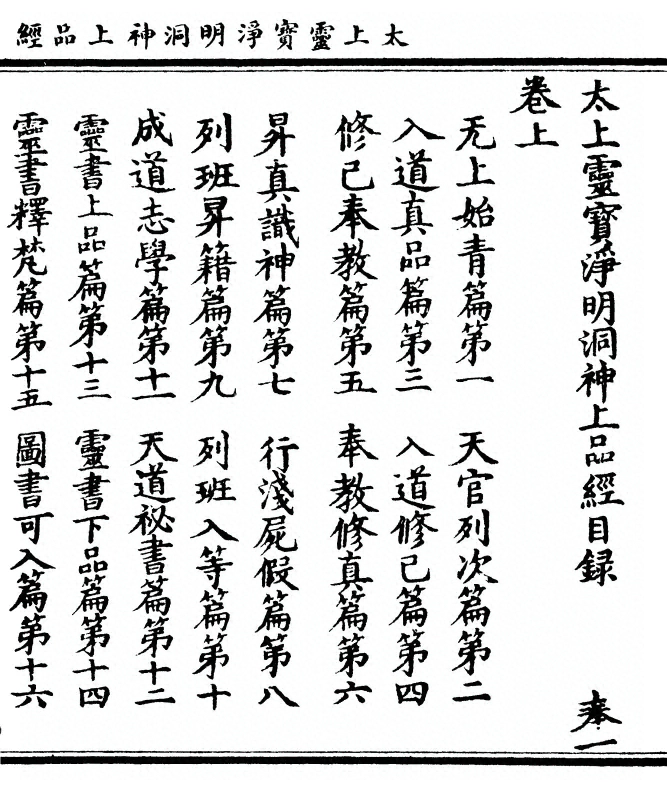 太上靈寶淨明洞神上品經
太上靈寶淨明洞神上品經目録 奉一
卷上
无上始青篇第一 天官列次篇第二
入道真品篇第三 入道修己篇第四
修己奉教篇第五 奉教修真篇第六
昇真識神篇第七 行淺屍假篇第八
列班昇籍篇第九 列班入等篇第十
成道志學篇第十一 天道祕書篇第十二
靈書上品篇第十三 靈書下品篇第十四
靈書釋梵篇第十五 圖書可入篇第十六